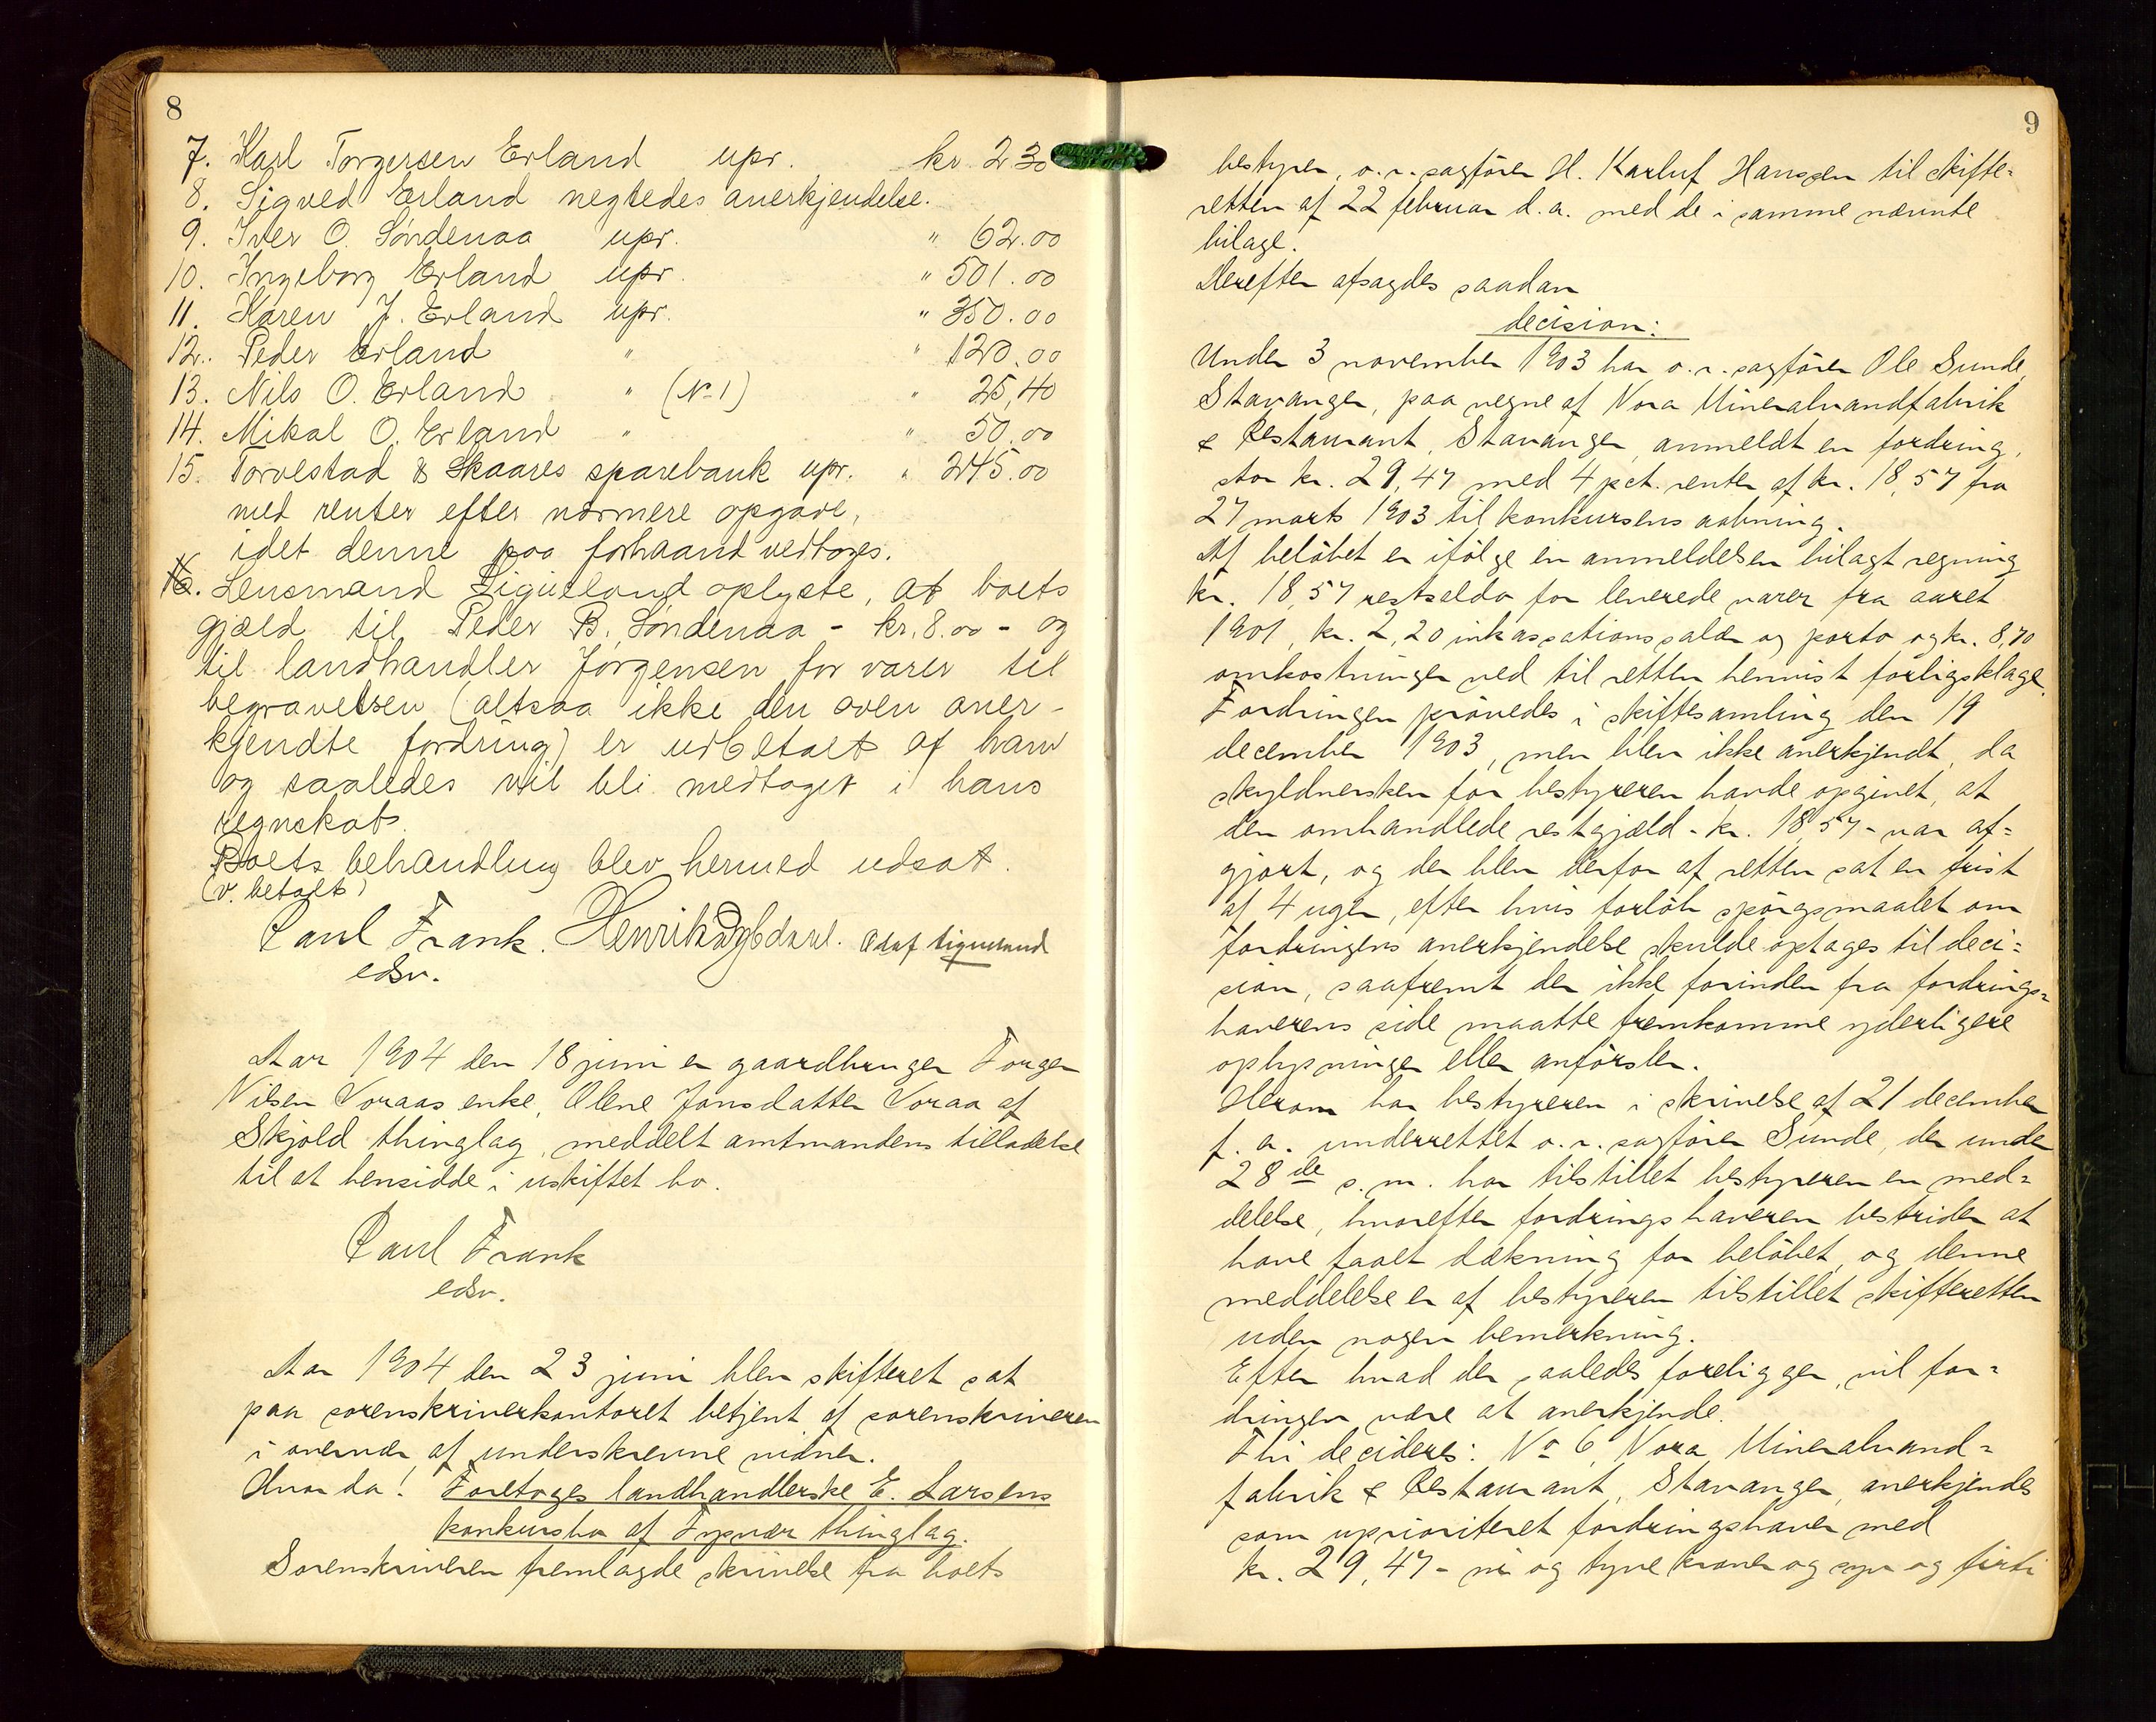 8
7. Karl Torgersen Erland upr. kr. 2.30
8. Sigved Erland negtedes anerkjendelse.
9. Iver O. Søndenaa upr. " 62.00
10. Ingeborg Erland upr. " 501.00
11. Karen J. Erland upr. " 350.00
12. Peder Erland " " 120.00
13. Nils O. Erland " (No 1) " 25,40
14. Mikal O. Erland " " 50.00
15. Torvestad & Skaares sparebank upr. " 245.00
med renter efter nærmere opgave,
idet denne paa forhaand vedtoges.
16. Lensmand Sigueland oplyste, at boets
gjæld til Peder B. Søndenaa - kr. 8.00 - og
til landhandler Jørgensen for varer til
begravelsen (altsaa ikke den oven aner-
kjendte fordring) er udbetalt af ham
og saaledes vil bli medtaget i hans
regnskab.
Boets behandling blev hermed udsat.
(v. betalt)
Paul Frank. Henrik Dybdahl. Adaf Sigueland
edsv.
Aar 1904 den 18 juni er gaardbruger Torger
Nilsen Voraas enke, Olene Jonsdatter Voraa af
Skjold thinglag, meddelt amtmandens tilladelse
til at hensidde i uskiftet bo.
Paul Frank
edsv.
Aar 1904 den 23 juni blev skifteret sat
paa sorenskriverkontoret betjent af sorenskriveren
i overvær af underskrevne vidner.
Hvor da! Foretoges landhandlerske E. Larsens
konkursbo af Tysvær thinglag.
Sorenskriveren fremlagde skrivelse fra boets
9
bestyrer, o.r.sagfører H. Karluf Hanssen til skifte=
retten af 22 februar d.a. med de i samme nævnte
bilage.
Derefter afsagdes saadan
decision:
Under 3 november 1903 har o.r.sagfører Ole Sunde,
Stavanger, paa vegne af Nora Mineralvandfabrik
& Restaurant, Stavanger, anmeldt en fordring,
stor kr. 29,47 med 4 pct. renter af kr. 18,57 fra
27 marts 1903 til konkursens aabning.
Af beløbet er ifølge en anmeldelsen bilagt regning
kr. 18,57 restsaldo for leverede varer fra aaret
1901, kr. 2,20 inkassationssalær og porto og kr. 8,70
omkostninger ved til retten henvist forligsklage.
Fordringen prøvedes i skiftesamling den 19
december 1903, men blev ikke anerkjendt, da
skyldnersken for bestyreren havde opgivet, at
den omhandlede restgjæld - kr. 18,57 - var af=
gjort, og der blev derfor af retten sat en frist
af 4 uger, efter hvis forløb spørgsmaalet om
fordringens anerkjendelse skulde optages til deci=
sion, saafremt der ikke forinden fra fordrings=
haverens side maatte fremkomme yderligere
oplysninger eller anførsler.
Herom har bestyreren i skrivelse af 21 december
f.a. underrettet o.r.sagfører Sunde, der under
28de s.m. har tilstillet bestyreren en med=
delelse, hvorefter fordringshaveren bestrider at
have faaet dækning for beløbet, og denne
meddelelse er af bestyreren tilstillet skifteretten
uden nogen bemerkning.
Efter hvad der saaledes foreligger, vil for=
dringen være at anerkjende.
Thi decideres: No 6, Nora Mineralvand=
fabrik & Restaurant, Stavanger, anerkjendes
som uprioriteret fordringshaver med
kr. 29,47 - ni og tyve kroner og syv og firti